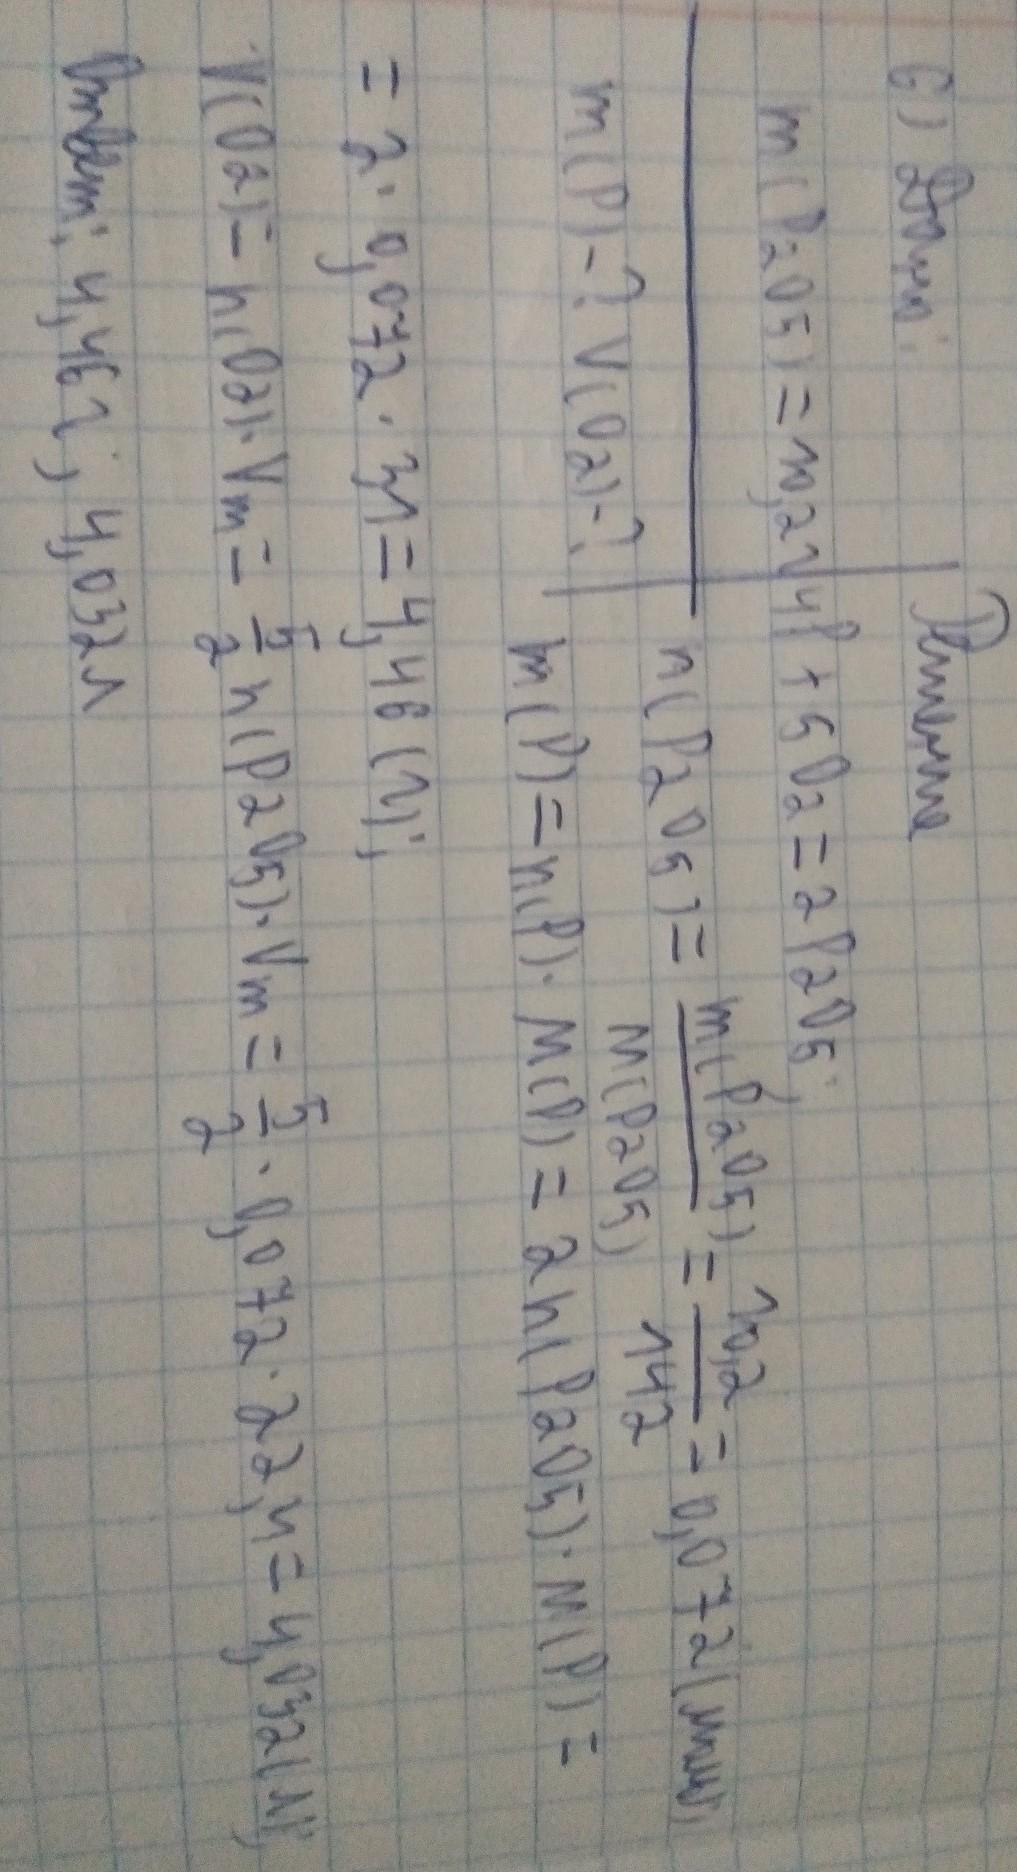 6) Дано:
Решение
m(P2O5)=10,2г
4P+5O2=2P2O5;
n(P2O5)=m(P2O5)/M(P2O5)=10,2/142=0,072(моль);
m(P)-? V(O2)-?
m(P)=n(P)·M(P)=2n(P2O5)·M(P)=
=2·0,072·31=4,46(г);
V(O2)=n(O2)·Vm=5/2n(P2O5)·Vm=5/2·0,072·22,4=4,032(л);
Ответ: 4,46г; 4,032л